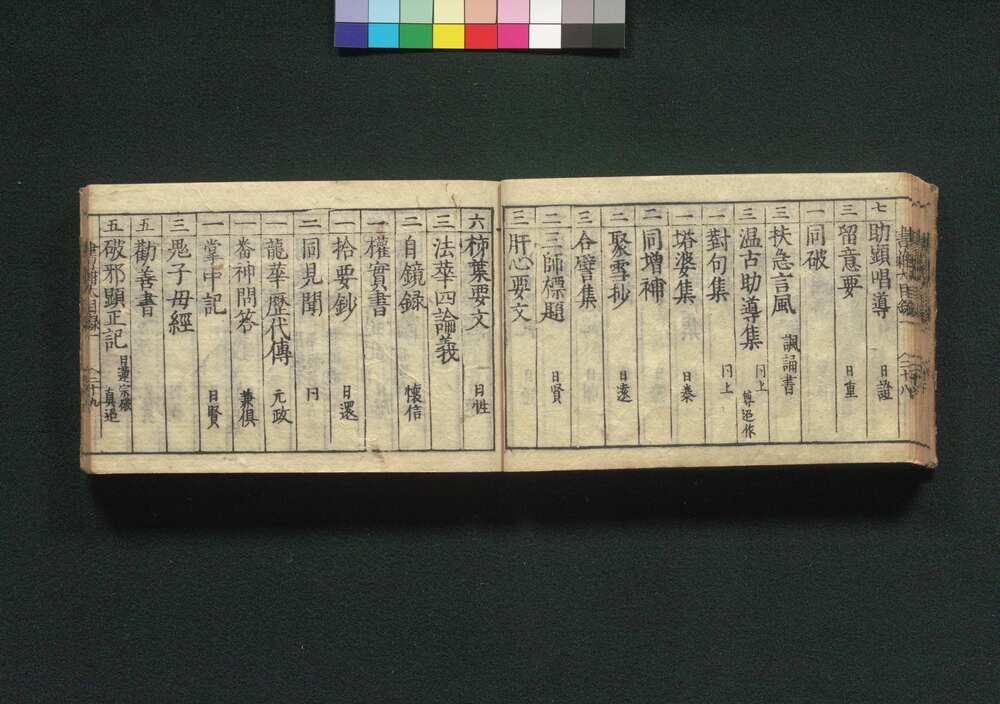 七 助顕唱導 日證
三 留意要 日重
一 同破
三 扶急言風 諷誦書
三 温古助導集 同上
一 對句集 同上
一 塔婆集 日奏
二 同増補
二 聚雪抄 日遠
三 合璧集
二 三師標題 日賢
三 肝心要文
六 柿葉要文 日性
三 法華四論義
二 自鏡録 懐信
一 權實書
一 拾要鈔 日還
二 同見聞 同
一 龍華歴代傳 元政
一 番神問答 兼倶
一 掌中記 日賢
三 鬼子母經
五 勸善書
五 破邪顕正記 日蓮宗破 真迢